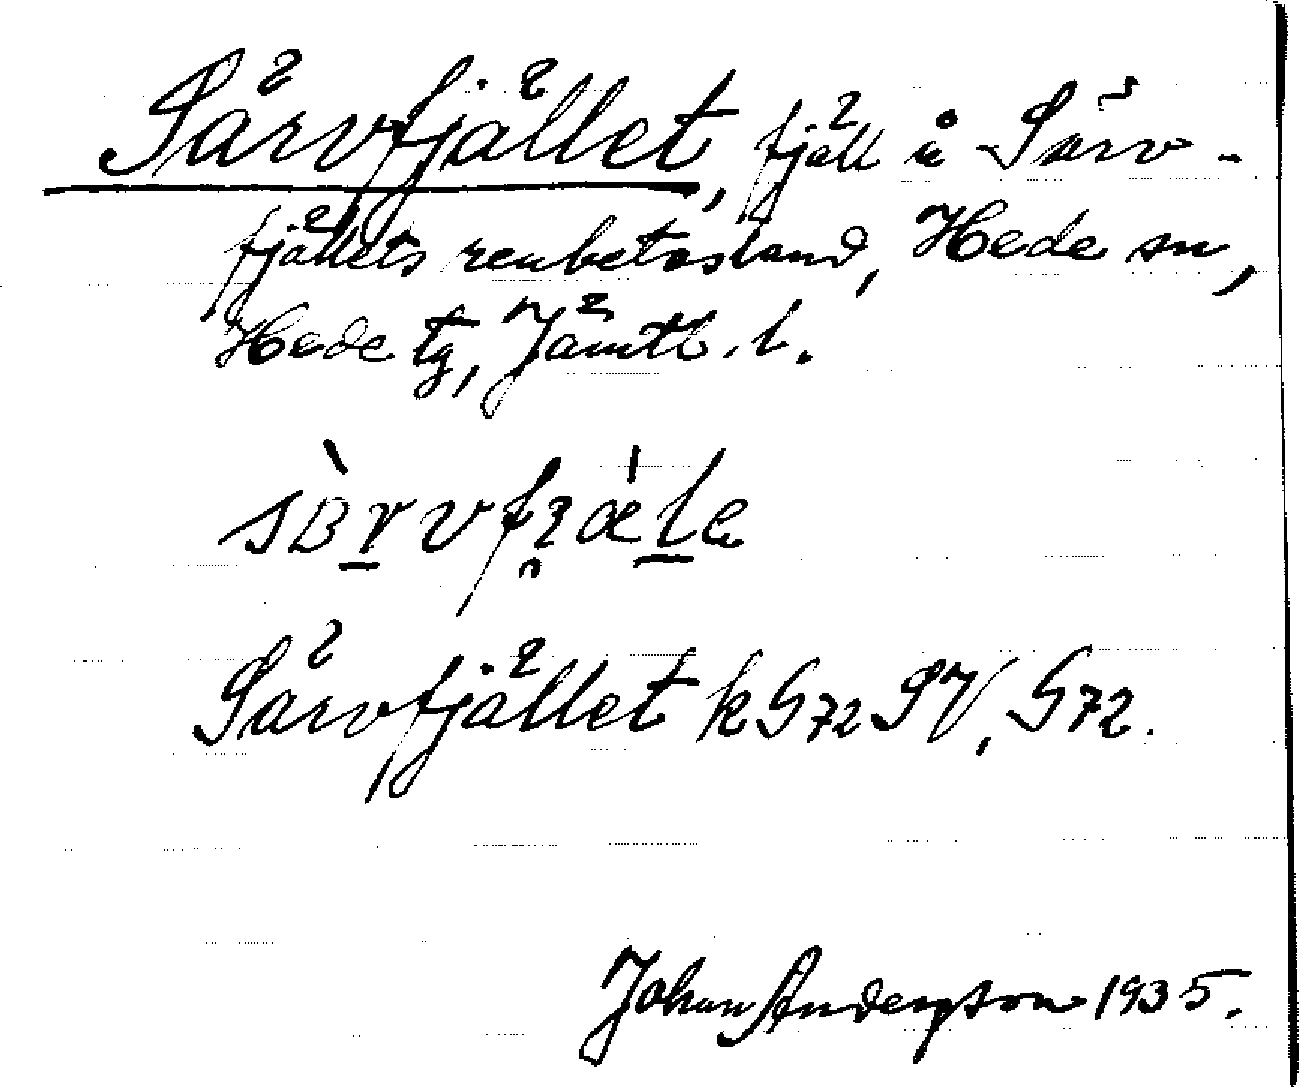 Särvfjället, fjäll å Särv-
fjällets renbetesland, Hede sn,
Hede tg, Jämtl. l.
Särvfjället k G72 SV, G72.
Johan Anderson 1935.